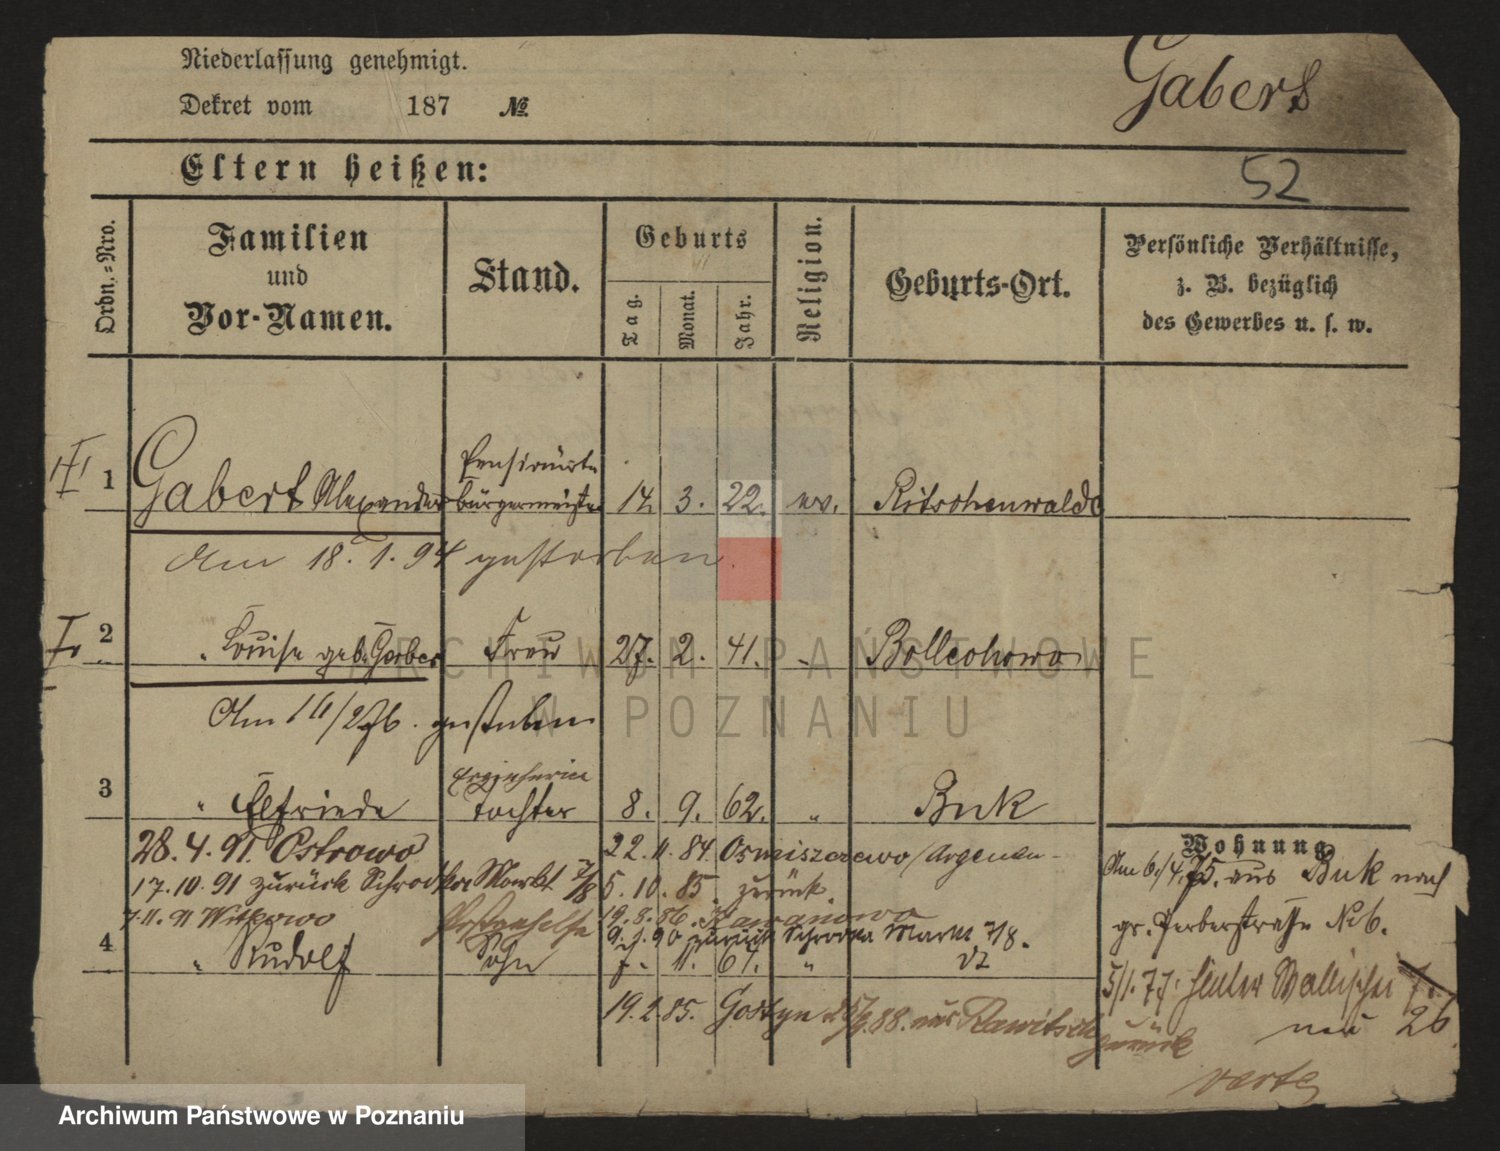 Niederlassung genehmigt.
Dekret vom 187 №
Gabert
Eltern heißen:
52
Ordn.=Nro.
Familien
und
Vor-Namen.
Stand.
Geburts
Tag.
Monat.
Jahr.
Religion.
Geburts-Ort.
Persönliche Verhältnisse,
z. B. bezüglich
des Gewerbes u. s. w.
I 1 Gabert Alexander pensionirter bürgermeister 14. 3. 22. ev. Ritschenwalde
Am 18. 1. 94 gestorben.
I. 2 " Louise geb. Gerber Frau 27. 2. 41. " Bollechowo
Am 16/2 76. gestorben
3 " Elfriede Erzieherin tochter 8. 9. 62. " Buk
28. 4. 91. Ostrowo
22. 11. 84. Osmiszewo/Argenau
17. 10. 91 zurück Schrodka Markt 7/8
5. 10. 85. zurück.
7. 11. 91 Witkowo
19. 8. 86.
9. 1. 90 zurück Schrodka Markt 7/8.
4 " Rudolf Sohn 7. 11. 67. " dt
19. 2. 85. Gostyn 88. aus Rawitsch zurück
Wohnung
Am 6./4. 75. aus Buk nach
gr. Gerberstraße No 6.
5/1. 77. hinter Wallischei 7.
neu 26
verte
ARCHIWUM PAŃSTWOWE
W POZNANIU
Archiwum Państwowe w Poznaniu